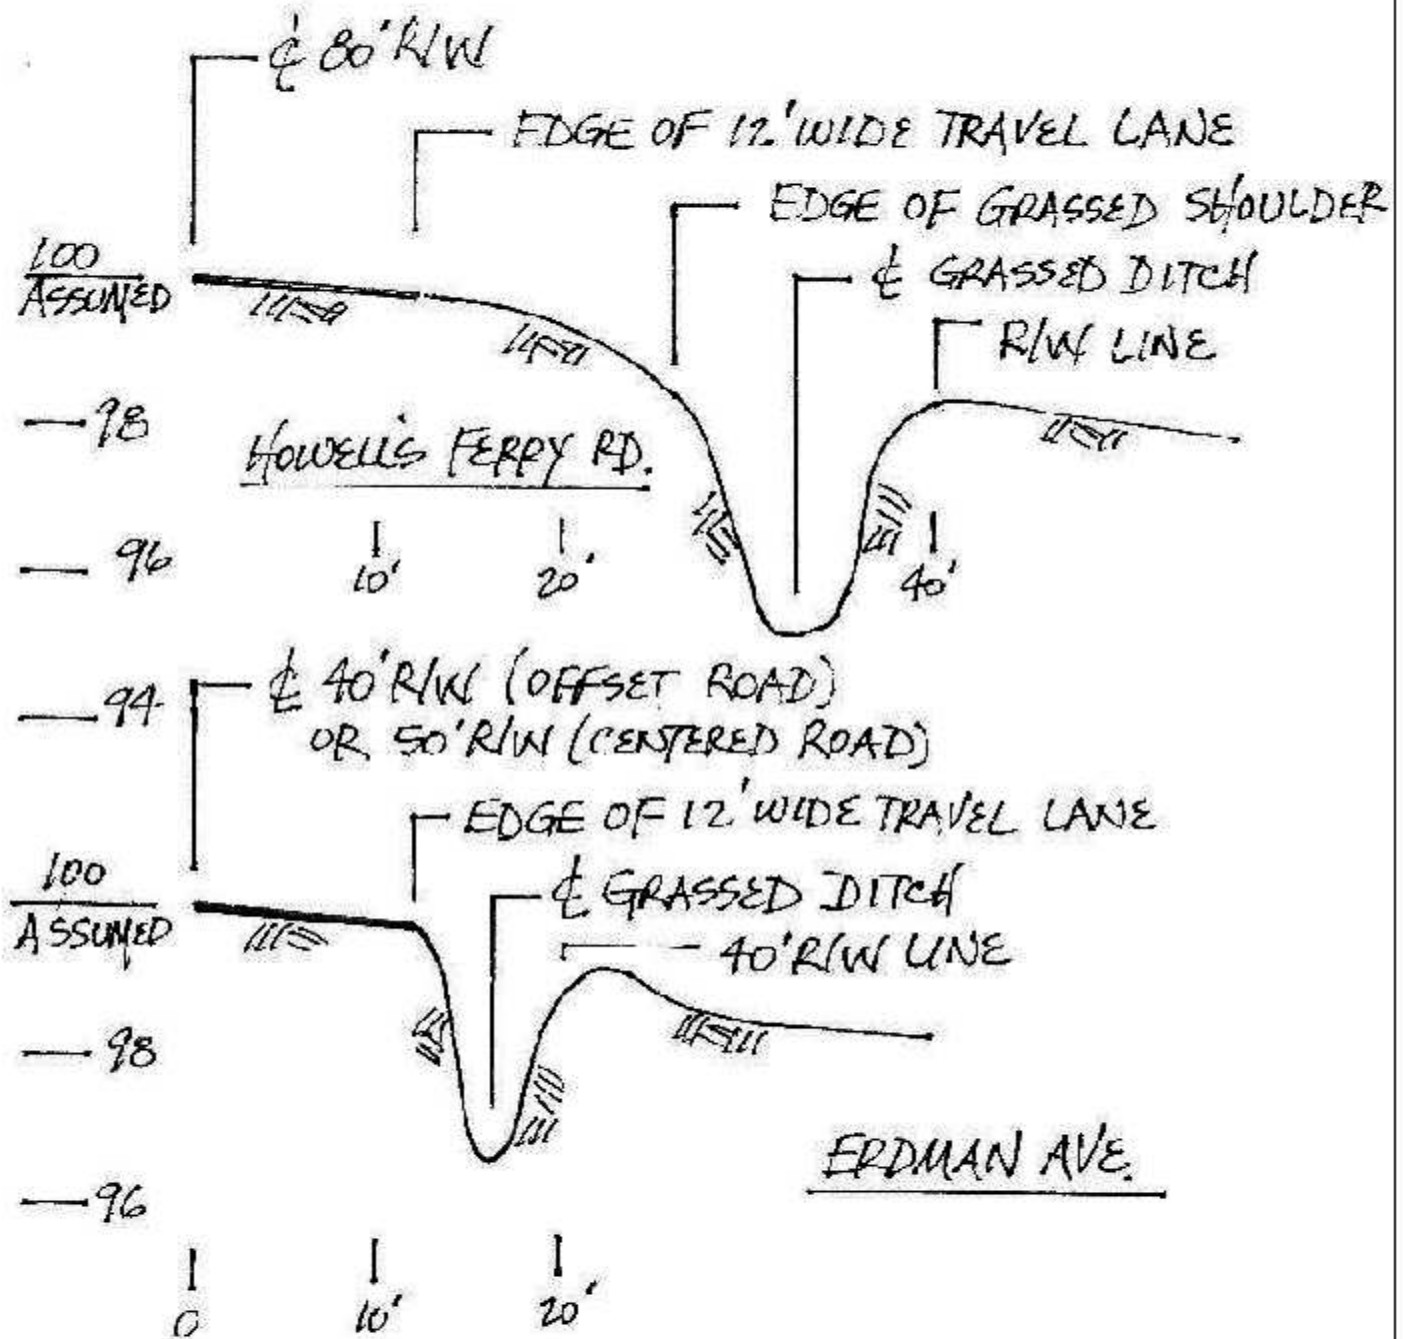 ℄ 80' R/W
EDGE OF 12' WIDE TRAVEL LANE
EDGE OF GRASSED SHOULDER
℄ GRASSED DITCH
R/W LINE
100
ASSUMED
98
HOWELL'S FERRY RD.
96
10'
20'
40'
94
℄ 40' R/W (OFFSET ROAD)
OR 50' R/W (CENTERED ROAD)
EDGE OF 12' WIDE TRAVEL LANE
℄ GRASSED DITCH
40' R/W LINE
100
ASSUMED
98
ERDMAN AVE.
96
0
10'
20'